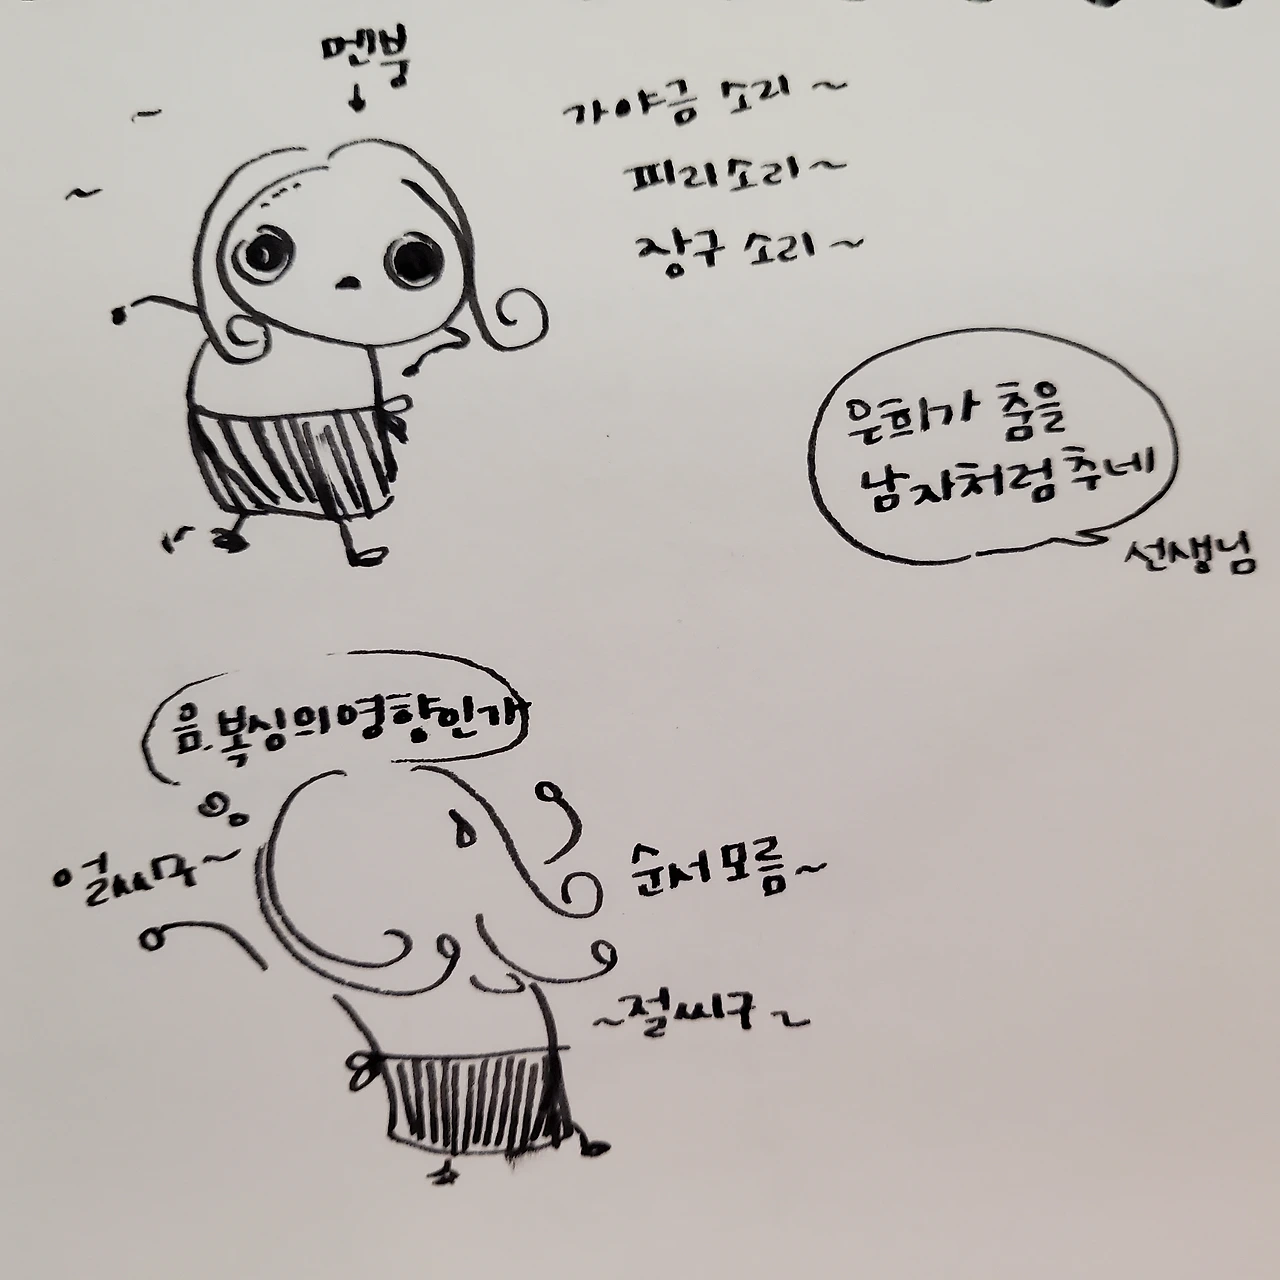 멘붕
가야금 소리~
피리소리~
장구 소리~
은희가 춤을
남자처럼 추네
선생님
음. 복싱의 영향인가
얼씨구~
순서모름~
~절씨구~